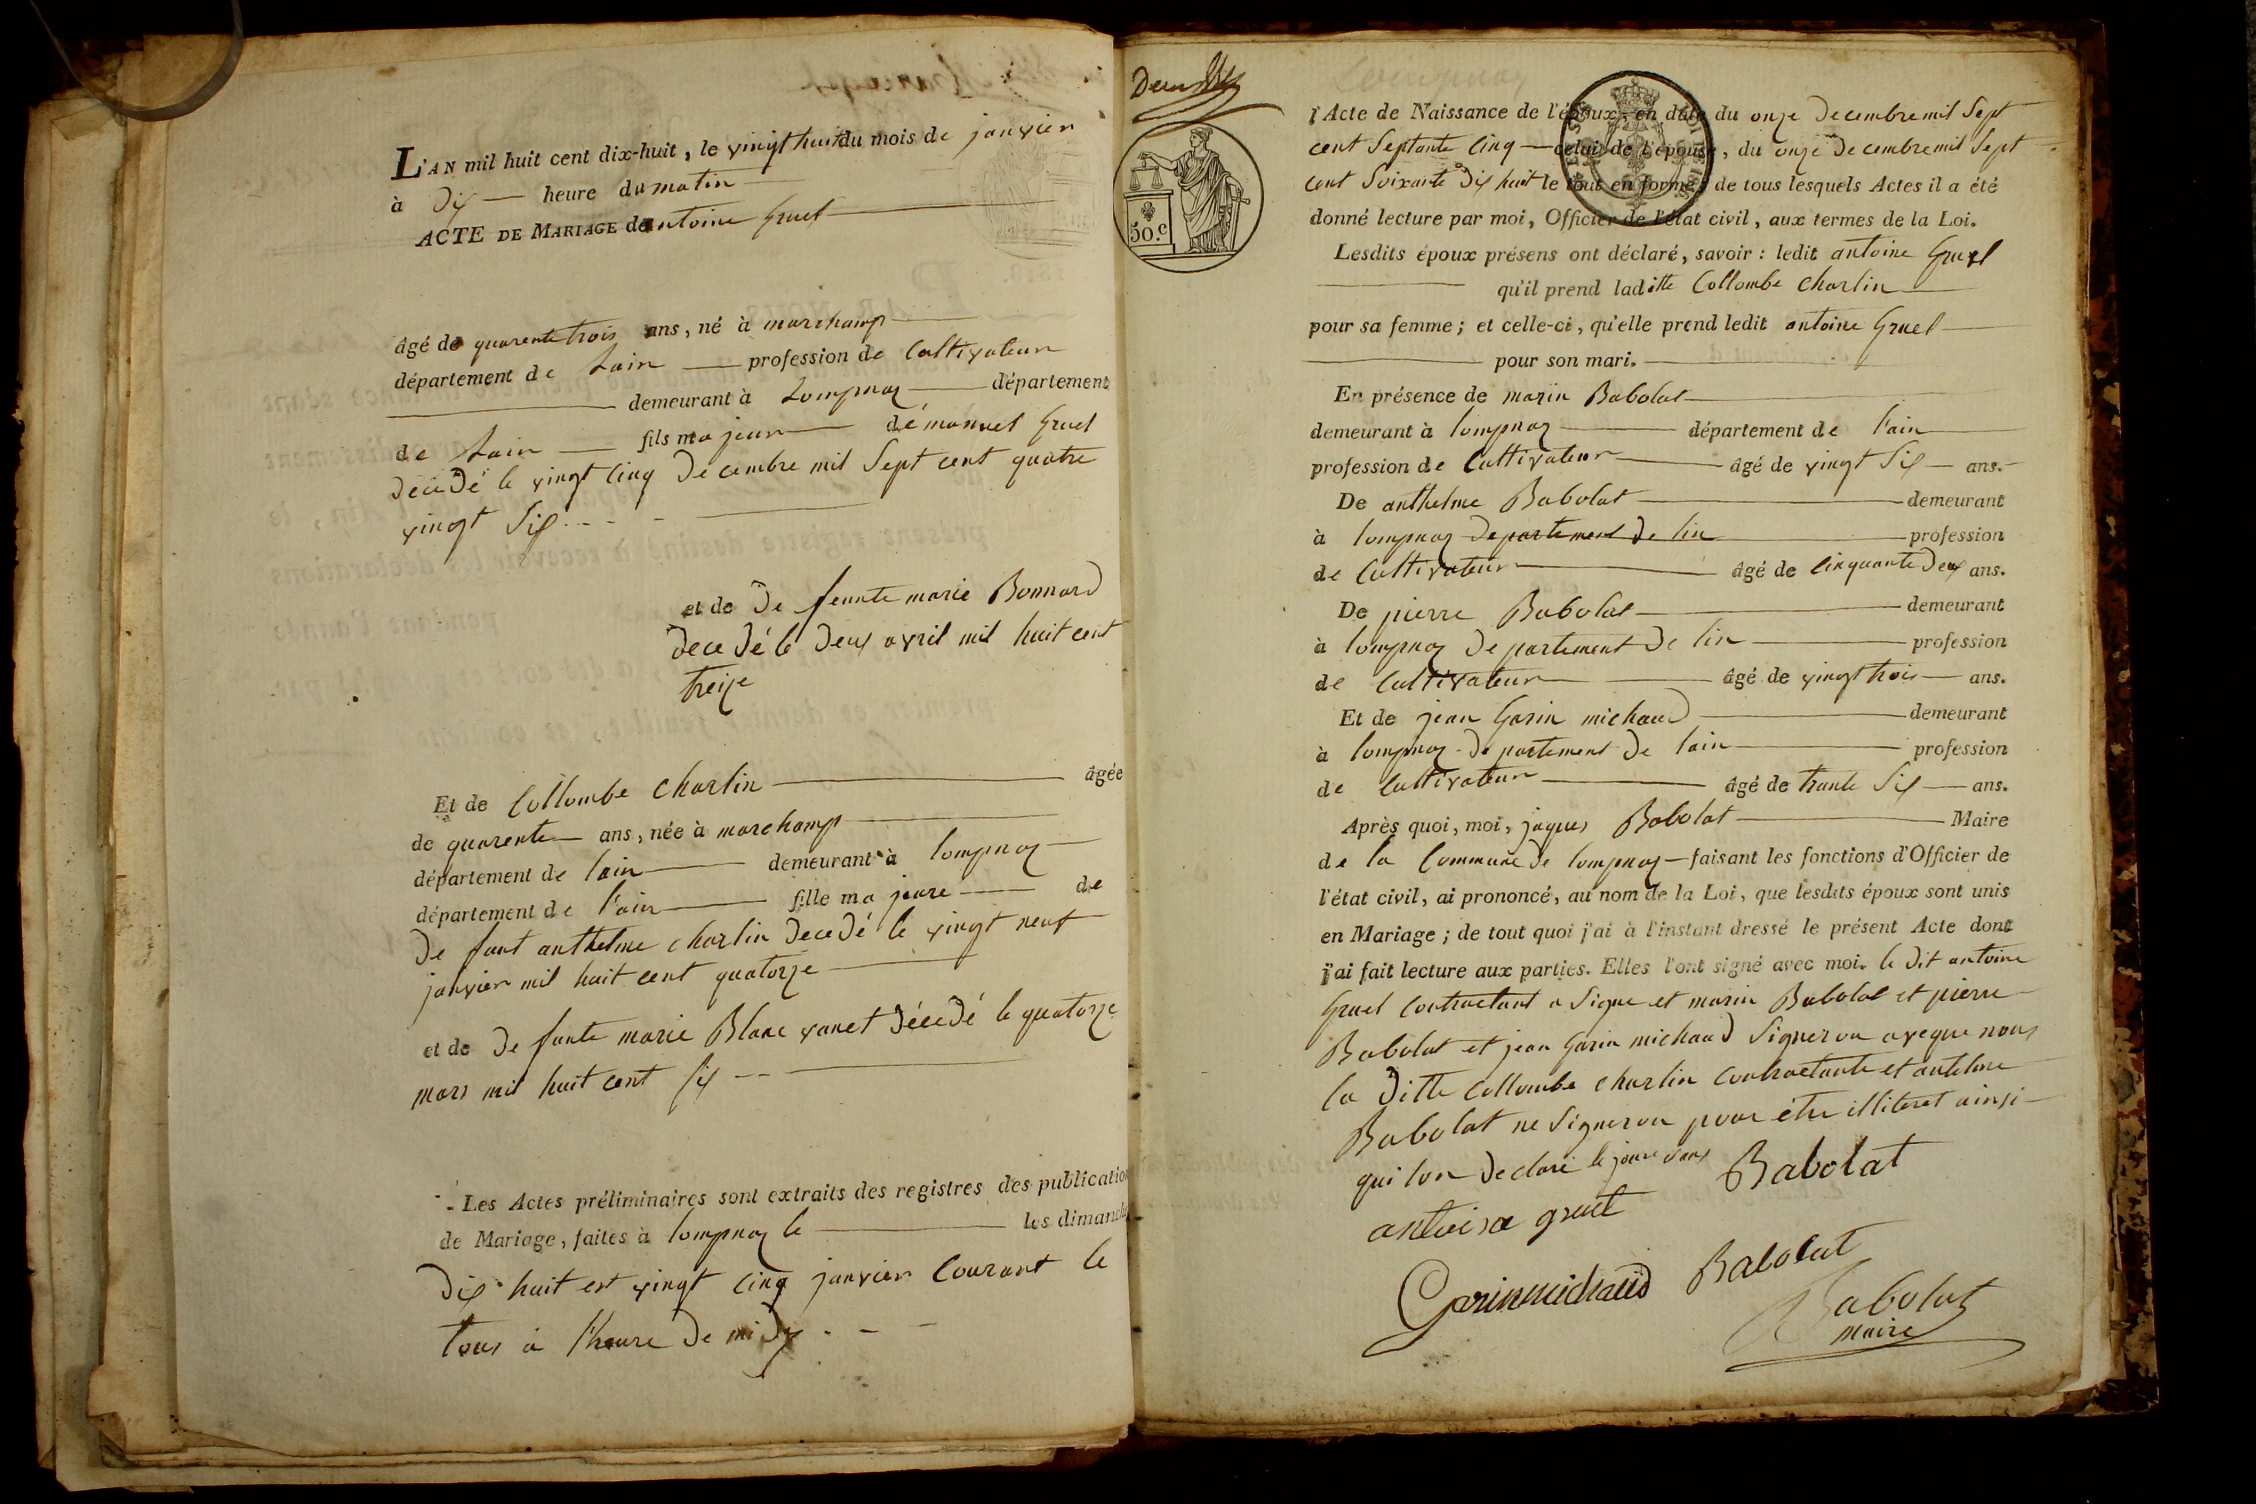 L'AN mil huit cent dix-huit, le vingt huit du mois de janvier
à dix heure du matin
ACTE DE MARIAGE de antoine Gruel
âgé de quarente trois ans, né à marchamp
département de Lain profession de Cultivateur
demeurant à Lompnaz département
de Lain fils majeur démanuel Gruel
décédé le vingt cinq decembre mil Sept cent quatre
vingt Six
et de De feunte marie Bonnard
decedé le deux avril mil huit cent
treize
Et de Collombe Charlin âgée
de quarente ans, née à marchamp
département de lain demeurant à lompnaz
département de l'ain fille majeure de
De faut anthelme charlin decedé le vingt neuf
janvier mil huit cent quatorze
et de De faute marie Blanc vanet décédé le quatorze
mars mil huit cent Six
Les Actes préliminaires sont extraits des registres des publication
de Mariage, faites à lompnaz le les dimanch
dix huit et vingt cinq janvier Courant le
tous à l'heure de midy
Deux
50.c
l'Acte de Naissance de l'époux, en date du onze decembre mil Sept
cent Septante Cinq celui de l'épouse, du onze decembre mil Sept
cent Soixante dix huit le tout en forme; de tous lesquels Actes il a été
donné lecture par moi, Officier de l'état civil, aux termes de la Loi.
Lesdits époux présens ont déclaré, savoir : ledit antoine Gruel
qu'il prend laditte Collombe Charlin
pour sa femme; et celle-ci, qu'elle prend ledit antoine Gruel
pour son mari.
En présence de marin Babolat
demeurant à lompnaz département de l'ain
profession de Cultivateur âgé de vingt Six ans.
De anthelme Babolat demeurant
à lompnaz departement de lin profession
de Cultivateur âgé de Cinquante deux ans.
De pierre Babolat demeurant
à lompnaz departement de lin profession
de Cultivateur âgé de vingt trois ans.
Et de jean Garin michaud demeurant
à lompnaz departement de lain profession
de Cultivateur âgé de trante Six ans.
Après quoi, moi, jaques Babolat Maire
de la Commune de lompnaz faisant les fonctions d'Officier de
l'état civil, ai prononcé, au nom de la Loi, que lesdits époux sont unis
en Mariage; de tout quoi j'ai à l'instant dressé le présent Acte dont
j'ai fait lecture aux parties. Elles l'ont signé avec moi. le dit antoine
Gruel Contractant a Signe et marin Babolat et pierre
Babolat et jean Garin michaud Signeron aveque nous
la ditte Collombe charlin Contractante et antelme
Babolat ne Signeron pour être illiteret ainsi
qui lon declaré le jour
antoine gruel Babolat
Garinmichaud Babolat
Babolat
maire